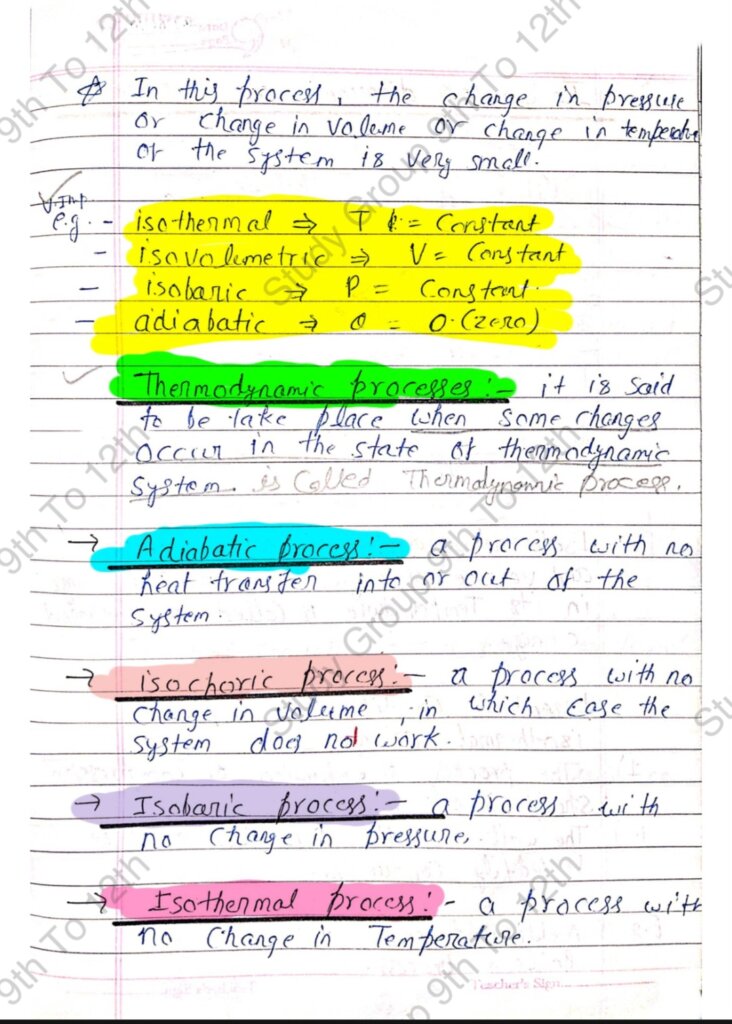 In this process, the change in pressure
or change in volume or change in temperature
of the system is very small.
V.Imp
e.g. - isothermal ⇒ T = Constant
- isovolumetric ⇒ V = Constant
- isobaric ⇒ P = Constant.
- adiabatic ⇒ Q = 0.(zero)
Thermodynamic processes:- it is said
to be take place when some changes
occur in the state of thermodynamic
system. is called Thermodynamic process.
→ Adiabatic process:- a process with no
heat transfer into or out of the
system.
→ isochoric process:- a process with no
change in volume, in which case the
system does not work.
→ Isobaric process:- a process with
no change in pressure.
→ Isothermal process:- a process with
no change in Temperature.
Teacher's Sign
9th To 12th
Study Group 9th To 12th
9th To 12th
Study Group 9th To 12th
9th To 12th